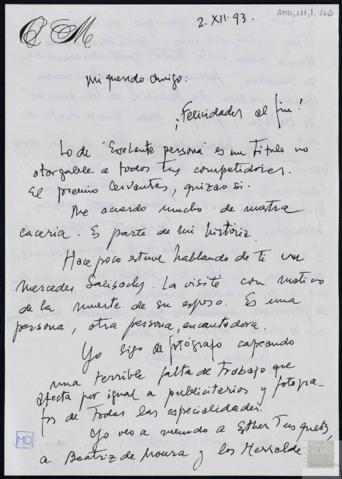 OM
2. XII. 93.
AMD, III, 1, 162
Mi querido Amigo:
¡Felicidades al fin!
Lo de "Excelente persona" es un Titulo no
otorgable a todos tus competidores.
El premio Cervantes, quizás si.
Me acuerdo mucho de nuestra
caceria. Es parte de mi historia.
Hace poco estuve hablando de ti con
Mercedes Salisachs. La visite con motivo
de la muerte de su esposo. Es una
persona, otra persona, encantadora.
Yo sigo de fotógrafo capeando
una terrible falta de trabajo que
afecta por igual a publicitarios y fotogra-
fos de Todas las especialidades.
Yo veo a menudo a Esther Tusquets,
a Beatriz de Moura y los Herralde
MD